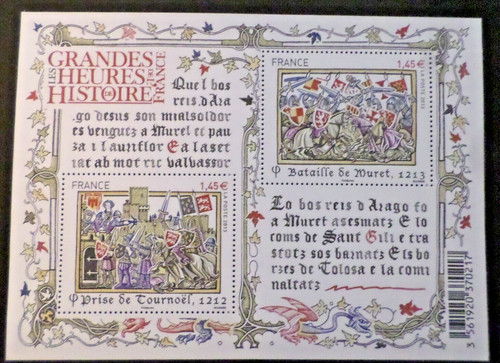 LES
GRANDES
HEURES DE
L'HISTOIRE
DE FRANCE
Que l bos
reis d'Arago
go desus son mialsoldor
es vengutz a Murel et pau
za i l auriflor E a la set
nat ab mot ric valvassor
FRANCE
1,45€
LA POSTE 2013
Bataille de Muret, 1213
FRANCE
1,45€
LA POSTE 2012
Prise de Tournoël, 1212
Lo bos reis d'Arago fo
a Muret asesmatz E lo
coms de Sant Gili e tra
stotz sos barnatz Els bo
rzes de Tolosa e la comi
naltatz
3 561920 370217